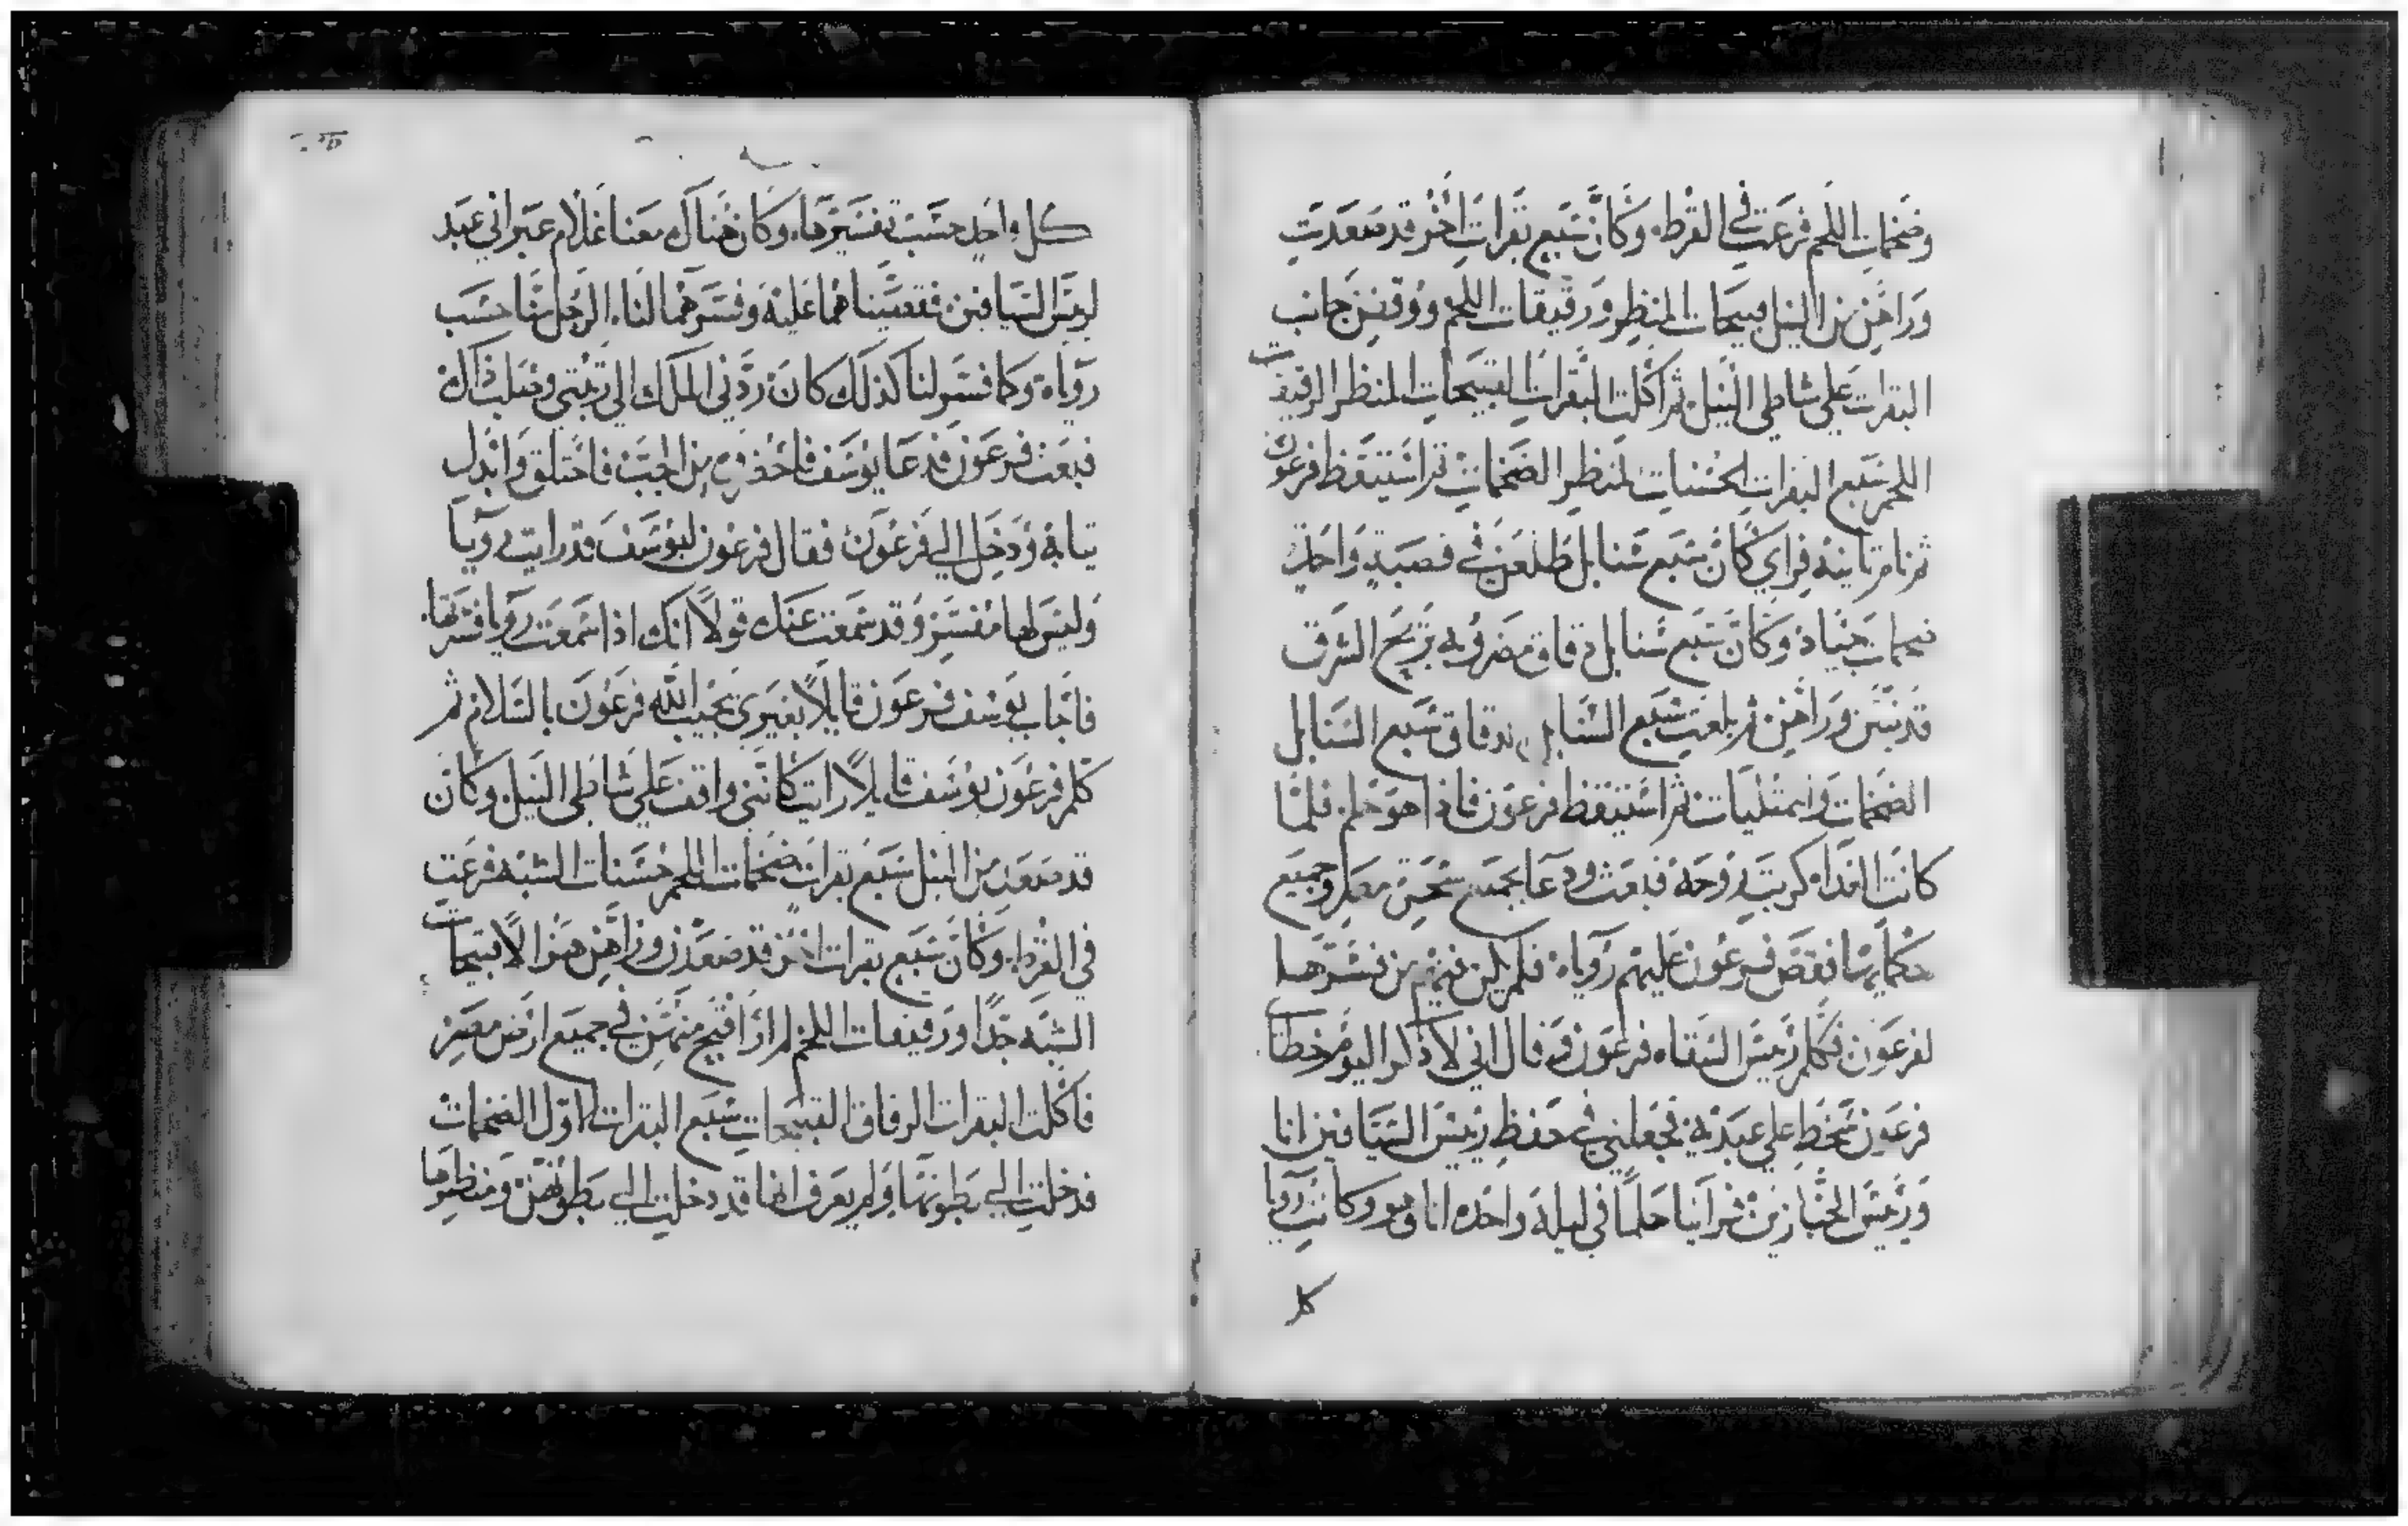 وضخمات اللحم فرعت في القرط. وكأن سبع بقرات اخر قد صعدت
وراهن من النيل قبيحات المنظر ورقيقات اللحم ووقفن جانب
البقرات على شاطي النيل. ثم اكلت البقرات القبيحات المنظر الرقيقات
اللحم سبع البقرات الحسنات المنظر الضخمات ثم استيقظ فرعون
ثم نام ثانيه فراي كأن سبع سنابل طلعن في قصبة واحدة
ضخمات جياد وكأن سبع سنابل دقاق مضروبه بريح الشرق
قد نبتن وراهن ثم بلعت سبع السنابل الدقاق سبع السنابل
الضخمات والممتليات ثم استيقظ فرعون فاذا هو حلم. فلما
كانت الغداه كربت روحه فبعث ودعا بجميع سحرة مصر وجميع
حكمايها فقص فرعون عليهم روياه. فلم يكن فيهم من فسرها
لفرعون فكلم رييس السقاه فرعون وقال اني لاذكر اليوم خطاي
فرعون سخط على عبديه فجعلني في حفظ رييس السيافين انا
ورييس الخبازين ثم راينا حلما في ليلة واحده انا وهو وكانت رويا
كل
كل واحد حسب تفسيرها. وكان هناك معنا غلام عبراني عبد
لرييس السيافين فقصيناهما عليه وفسرهما لنا. الرجل منا حسب
روياه وكما فسر لنا كذلك كان ردني الملك الي رتبتي وصلب ذاك
فبعث فرعون فدعا يوسف فاحضروه من الجب فاحتلق وابدل
ثيابه ودخل الي فرعون فقال فرعون ليوسف قد رايت رويا
وليس لها مفسر وقد سمعت عنك قولا انك اذا سمعت رويا فسرتها.
فاجاب يوسف فرعون قايلا بغيري يجيب الله فرعون بالسلام ثم
كلم فرعون يوسف قايلا رايت كانني واقف علي شاطي النيل وكان
قد صعد من النيل سبع بقرات ضخمات اللحم حسنات الشبه فرعت
في القرط. وكأن سبع بقرات اخر قد صعدن وراهن هزالا قبيحات
الشبه جدا ورقيقات اللحم لم ار اقبح منهن في جميع ارض مصر
فاكلت البقرات الرقاق القبيحات سبع البقرات الاول الضخمات
فدخلت الي بطونها ولم يعرف انها قد دخلت الي بطونهن ومنظرها